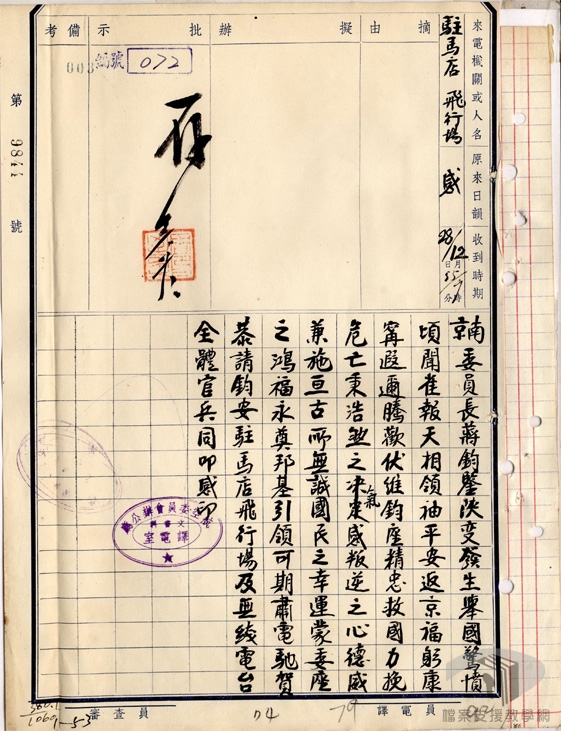 來電機關或人名
駐馬店飛行場
原來日韻
感
收到時期
28/12
月
日
時
分
摘由
擬辦
批示
備考
編號 072
003
第 9844 號
南京委員長蔣鈞鑒陝變發生舉國驚憤
頃聞隹報天相領袖平安返京福躬康
甯遐邇騰歡伏維鈞座精忠救國力挽
危亡秉浩然之氣決定感叛逆之心德威
兼施亘古所無誠國民之幸運蒙委座
之鴻福永奠邦基引領可期肅電馳賀
恭請鈞安駐馬店飛行場及無綫電台
全體官兵同叩感印
委員會辦公廳
譯電室
審查員
譯電員
74
79
檔案支援教學網